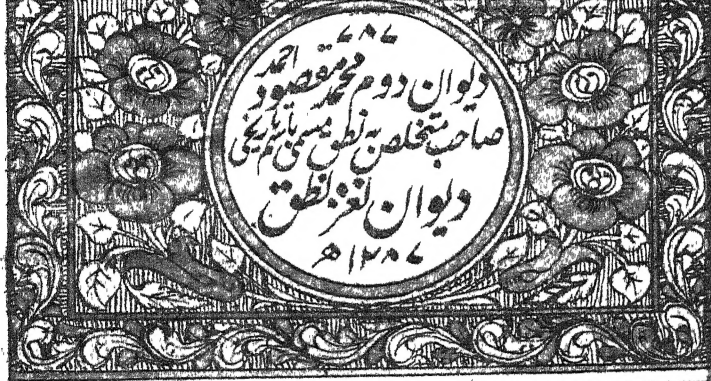 ۷۸۷
دیوان دوم محمد مقصود احمد
صاحب متخلص به نطق مسمی باسم تاریخی
دیوان نغز نطق
۱۲۸۷ھ